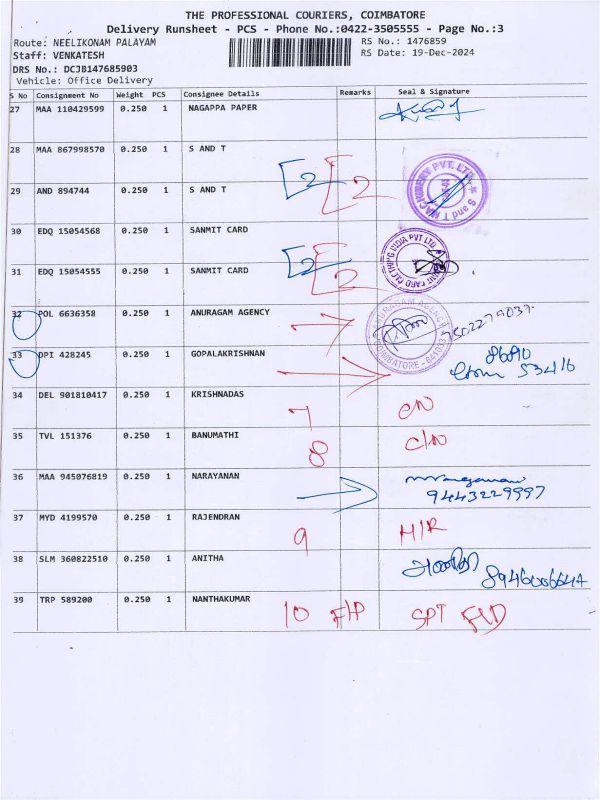 THE PROFESSIONAL COURIERS, COIMBATORE
Delivery Runsheet - PCS - Phone No.:0422-3505555 - Page No.:3
Route: NEELIKONAM PALAYAM
RS No.: 1476859
Staff: VENKATESH
RS Date: 19-Dec-2024
DRS No.: DCJB147685903
Vehicle: Office Delivery
S No Consignment No Weight PCS Consignee Details Remarks Seal & Signature
27 MAA 110429599 0.250 1 NAGAPPA PAPER
28 MAA 867998570 0.250 1 S AND T
2 2
29 AND 894744 0.250 1 S AND T
30 EDQ 15054568 0.250 1 SANMIT CARD
2 2
31 EDQ 15054555 0.250 1 SANMIT CARD
32 POL 6636358 0.250 1 ANURAGAM AGENCY
33 DPI 428245 0.250 1 GOPALAKRISHNAN
53416
34 DEL 901810417 0.250 1 KRISHNADAS 7
35 TVL 151376 0.250 1 BANUMATHI 8 C/N
36 MAA 945076819 0.250 1 NARAYANAN
9443229997
37 MYD 4199570 0.250 1 RAJENDRAN 9
38 SLM 360822510 0.250 1 ANITHA
39 TRP 589200 0.250 1 NANTHAKUMAR 10 SPT